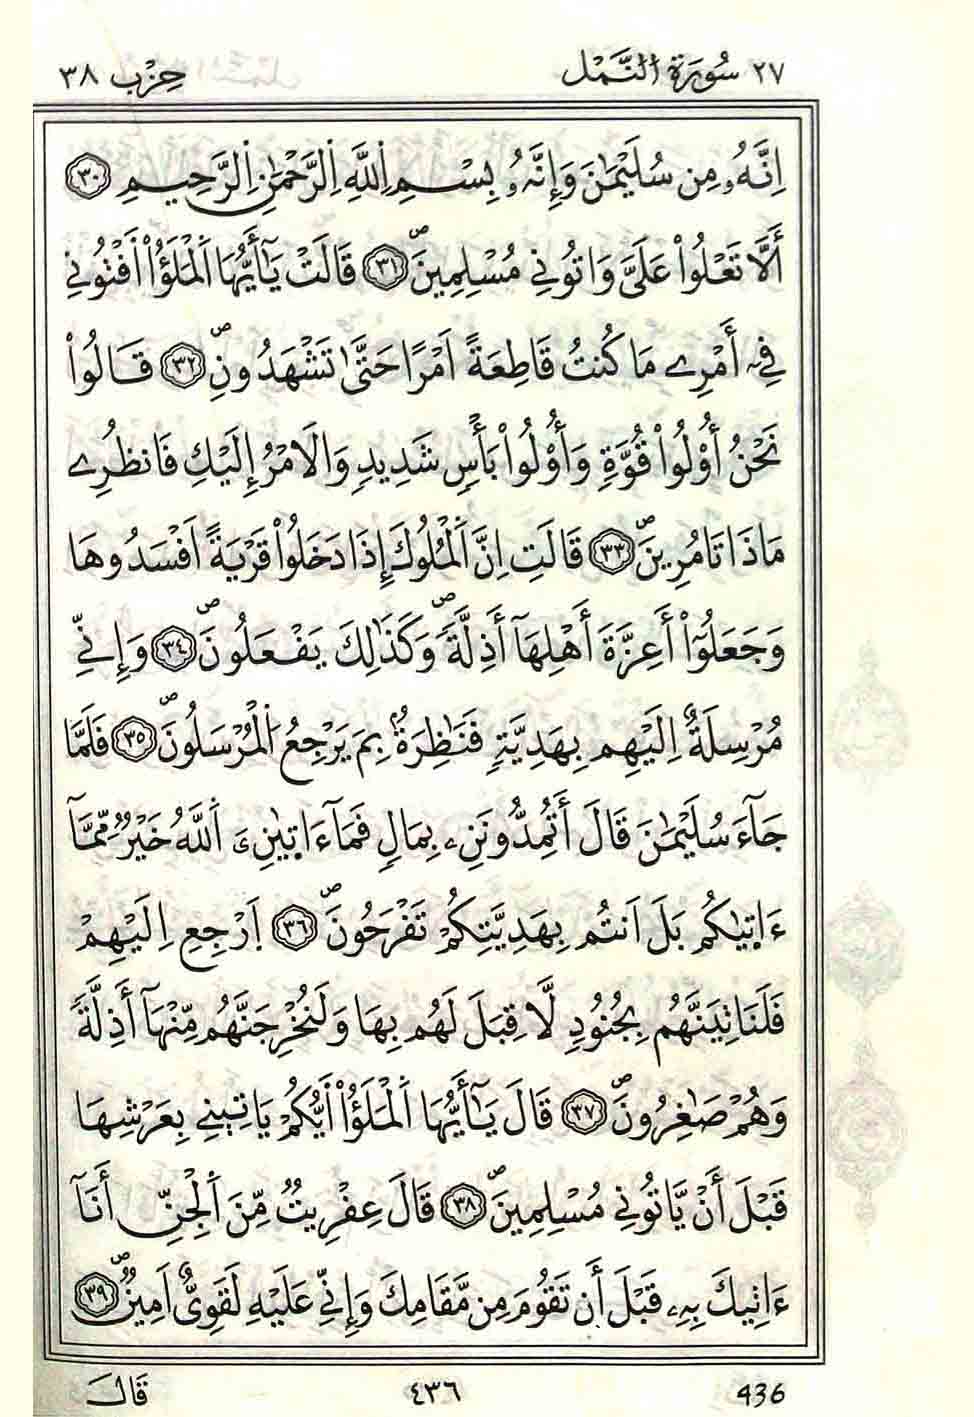 ٢٧ سُورَةُ النَّمْلِ حِزْب ٣٨
اِنَّهُۥ مِن سُلَيْمَٰنَ وَإِنَّهُۥ بِسْمِ اِ۬للَّهِ اِ۬لرَّحْمَٰنِ اِ۬لرَّحِيمِ ٣٠
أَلَّا تَعْلُواْ عَلَىَّ وَاتُونِے مُسْلِمِينَۖ ٣١ قَالَتْ يَٰٓأَيُّهَا اَ۬لْمَلَؤُاْ اَفْتُونِے
فِےٓ أَمْرِے مَا كُنتُ قَاطِعَةً اَمْراً حَتَّىٰ تَشْهَدُونِۖ ٣٢ قَالُواْ
نَحْنُ أُوْلُواْ قُوَّةٖ وَأُوْلُواْ بَأْسٖ شَدِيدٖ وَالَامْرُ إِلَيْكِ فَانظُرِے
مَاذَا تَامُرِينَۖ ٣٣ قَالَتِ اِنَّ اَ۬لْمُلُوكَ إِذَا دَخَلُواْ قَرْيَةً اَفْسَدُوهَا
وَجَعَلُوٓاْ أَعِزَّةَ أَهْلِهَآ أَذِلَّةٗۖ وَكَذَٰلِكَ يَفْعَلُونَۖ ٣٤ وَإِنِّے
مُرْسِلَةٌ اِلَيْهِم بِهَدِيَّةٖ فَنَٰظِرَةُۢ بِمَ يَرْجِعُ اُ۬لْمُرْسَلُونَۖ ٣٥ فَلَمَّا
جَآءَ سُلَيْمَٰنَ قَالَ أَتُمِدُّونَنِۦ بِمَالٖ فَمَآ ءَاتٜيٰنِۦَ اَ۬للَّهُ خَيْرٞ مِّمَّآ
ءَاتٜيٰكُم بَلَ اَنتُم بِهَدِيَّتِكُمْ تَفْرَحُونَۖ ٣٦ اَ۪رْجِعِ اِلَيْهِمْ
فَلَنَاتِيَنَّهُم بِجُنُودٖ لَّا قِبَلَ لَهُم بِهَا وَلَنُخْرِجَنَّهُم مِّنْهَآ أَذِلَّةٗ
وَهُمْ صَٰغِرُونَۖ ٣٧ قَالَ يَٰٓأَيُّهَا اَ۬لْمَلَؤُاْ اَيُّكُمْ يَاتِينِے بِعَرْشِهَا
قَبْلَ أَنْ يَّاتُونِے مُسْلِمِينَۖ ٣٨ قَالَ عِفْرِيتٞ مِّنَ اَ۬لْجِنِّ أَنَآ
ءَاتِيكَ بِهِۦ قَبْلَ أَن تَقُومَ مِن مَّقَامِكَ وَإِنِّے عَلَيْهِ لَقَوِيٌّ اَمِينٞۖ ٣٩
436 ٤٣٦ قَالَ